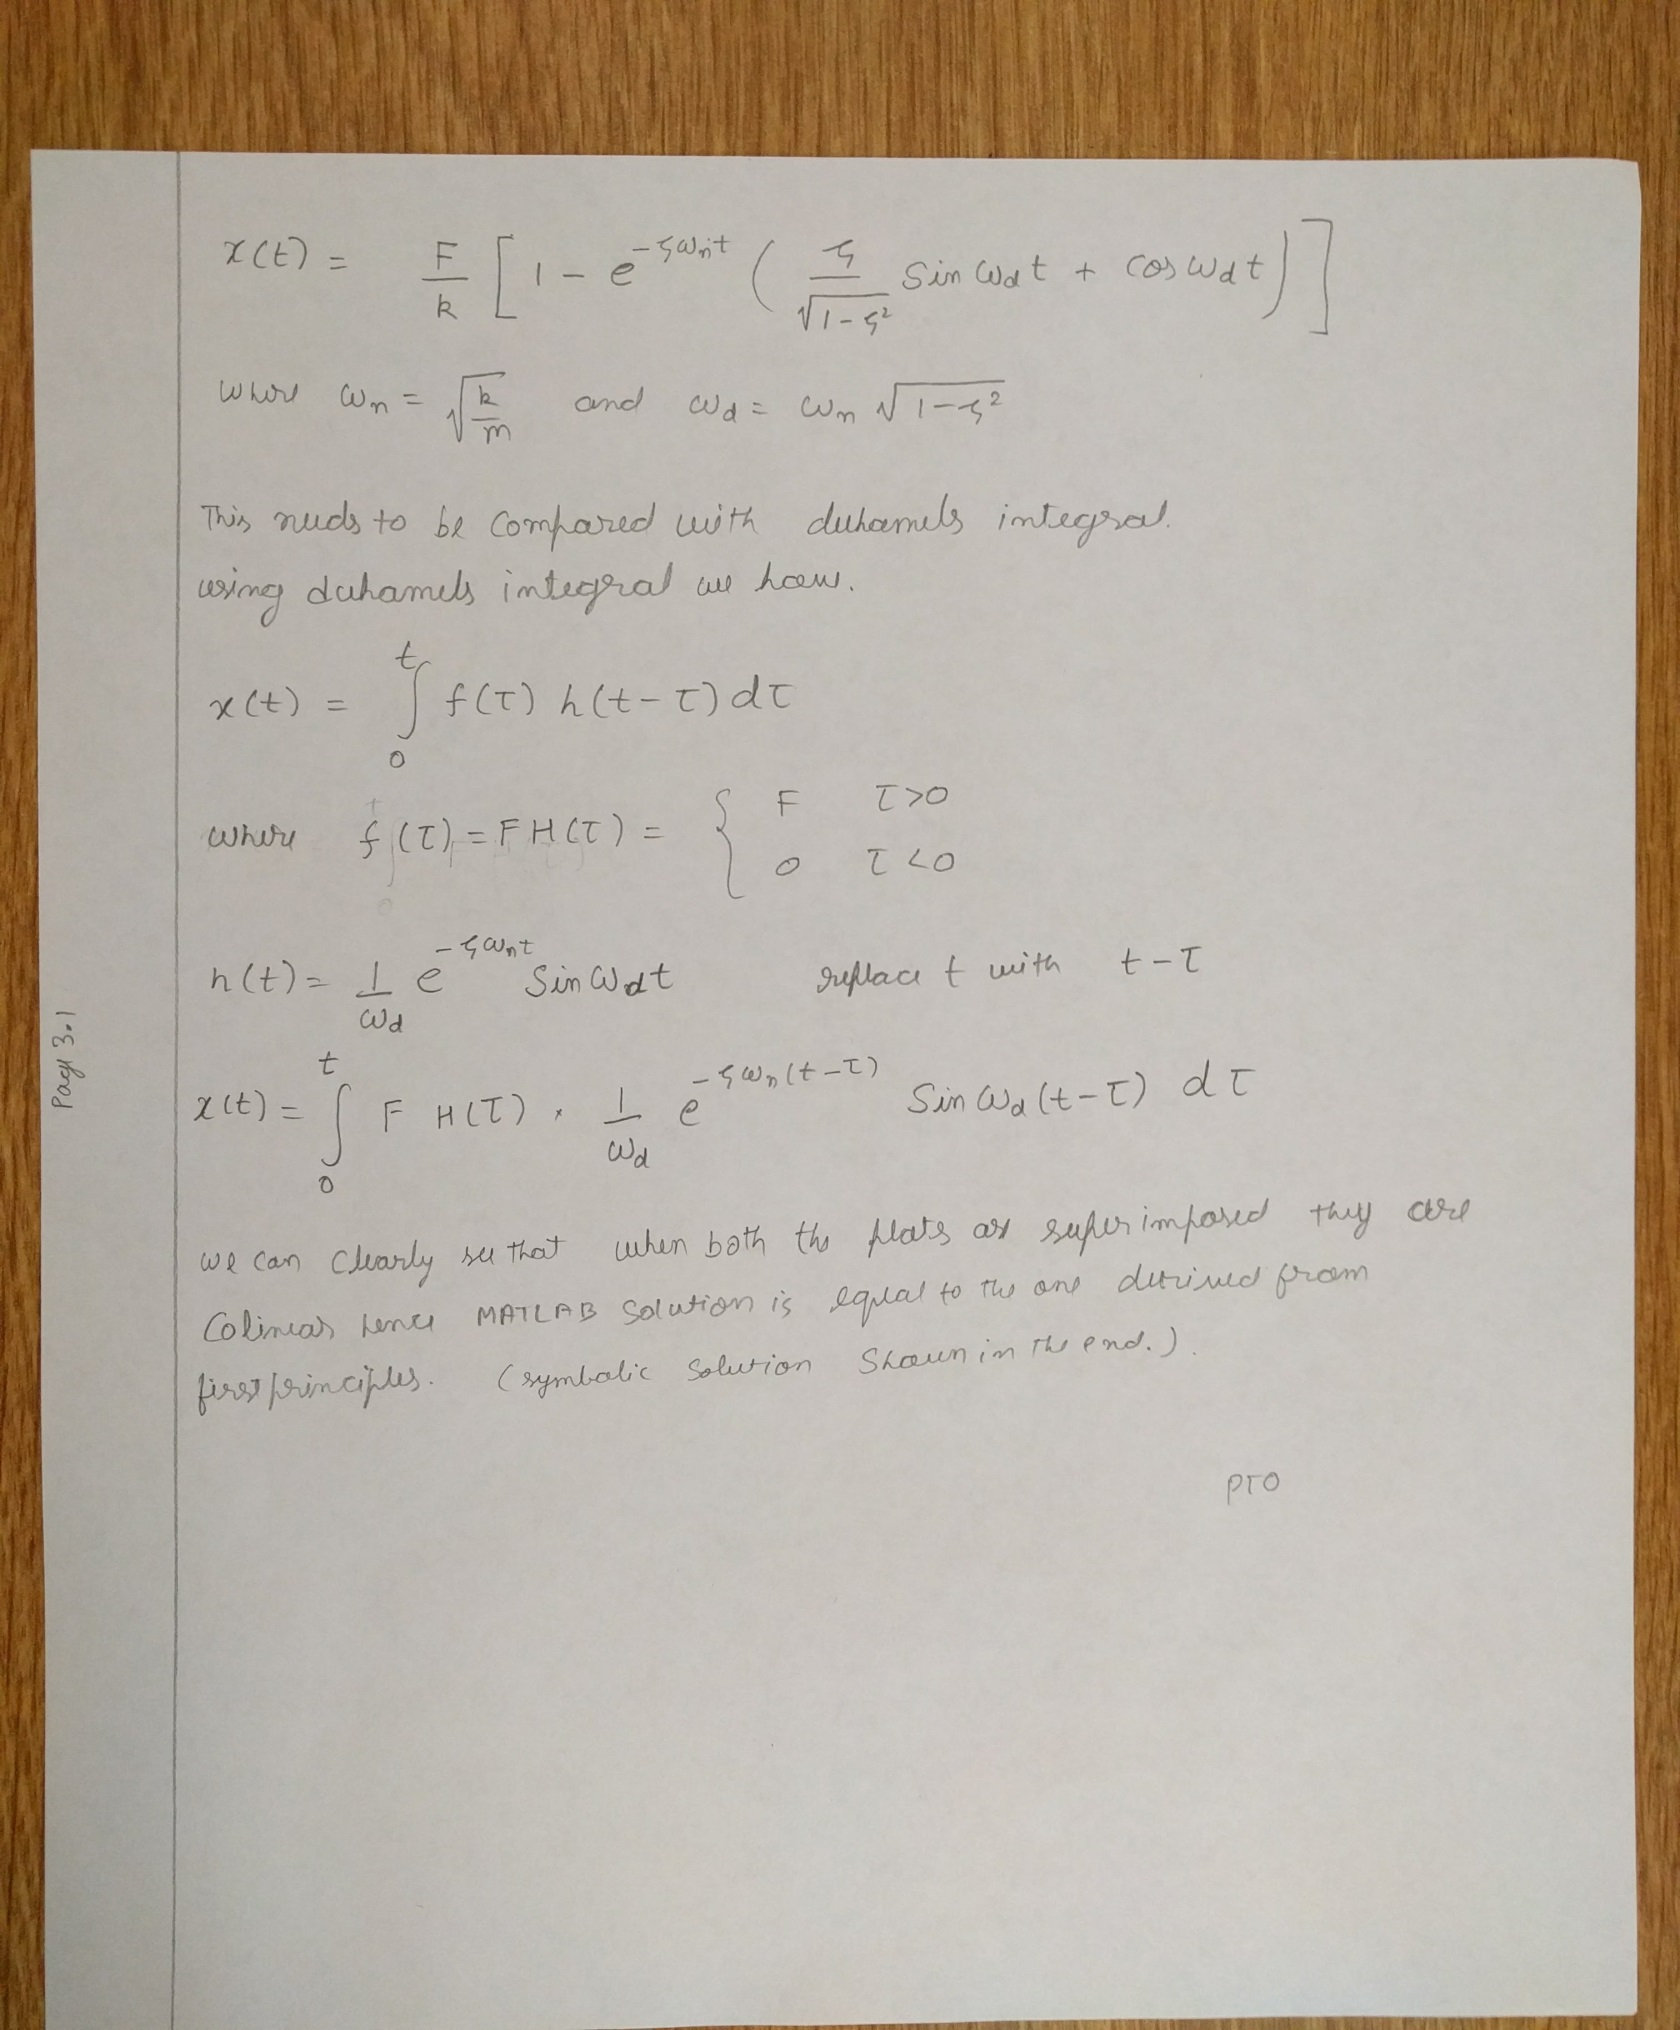 x(t) = F/k [ 1 - e^{-ζωnt} ( ζ/√(1-ζ²) Sin ωdt + cos ωdt ) ]
where ωn = √(k/m) and ωd = ωn √(1-ζ²)
This needs to be compared with duhamels integral.
using duhamels integral we have.
x(t) = ∫₀ᵗ f(τ) h(t-τ) dτ
where f(τ) = F H(τ) = { F τ>0
0 τ<0
h(t) = 1/ωd e^{-ζωnt} Sin ωdt replace t with t-τ
x(t) = ∫₀ᵗ F H(τ) . 1/ωd e^{-ζωn(t-τ)} Sin ωd(t-τ) dτ
we can clearly see that when both the plots are superimposed they are
Colinear hence MATLAB Solution is equal to the one derived from
first principles. (symbolic Solution Shown in the end.).
PTO
Page 3.1